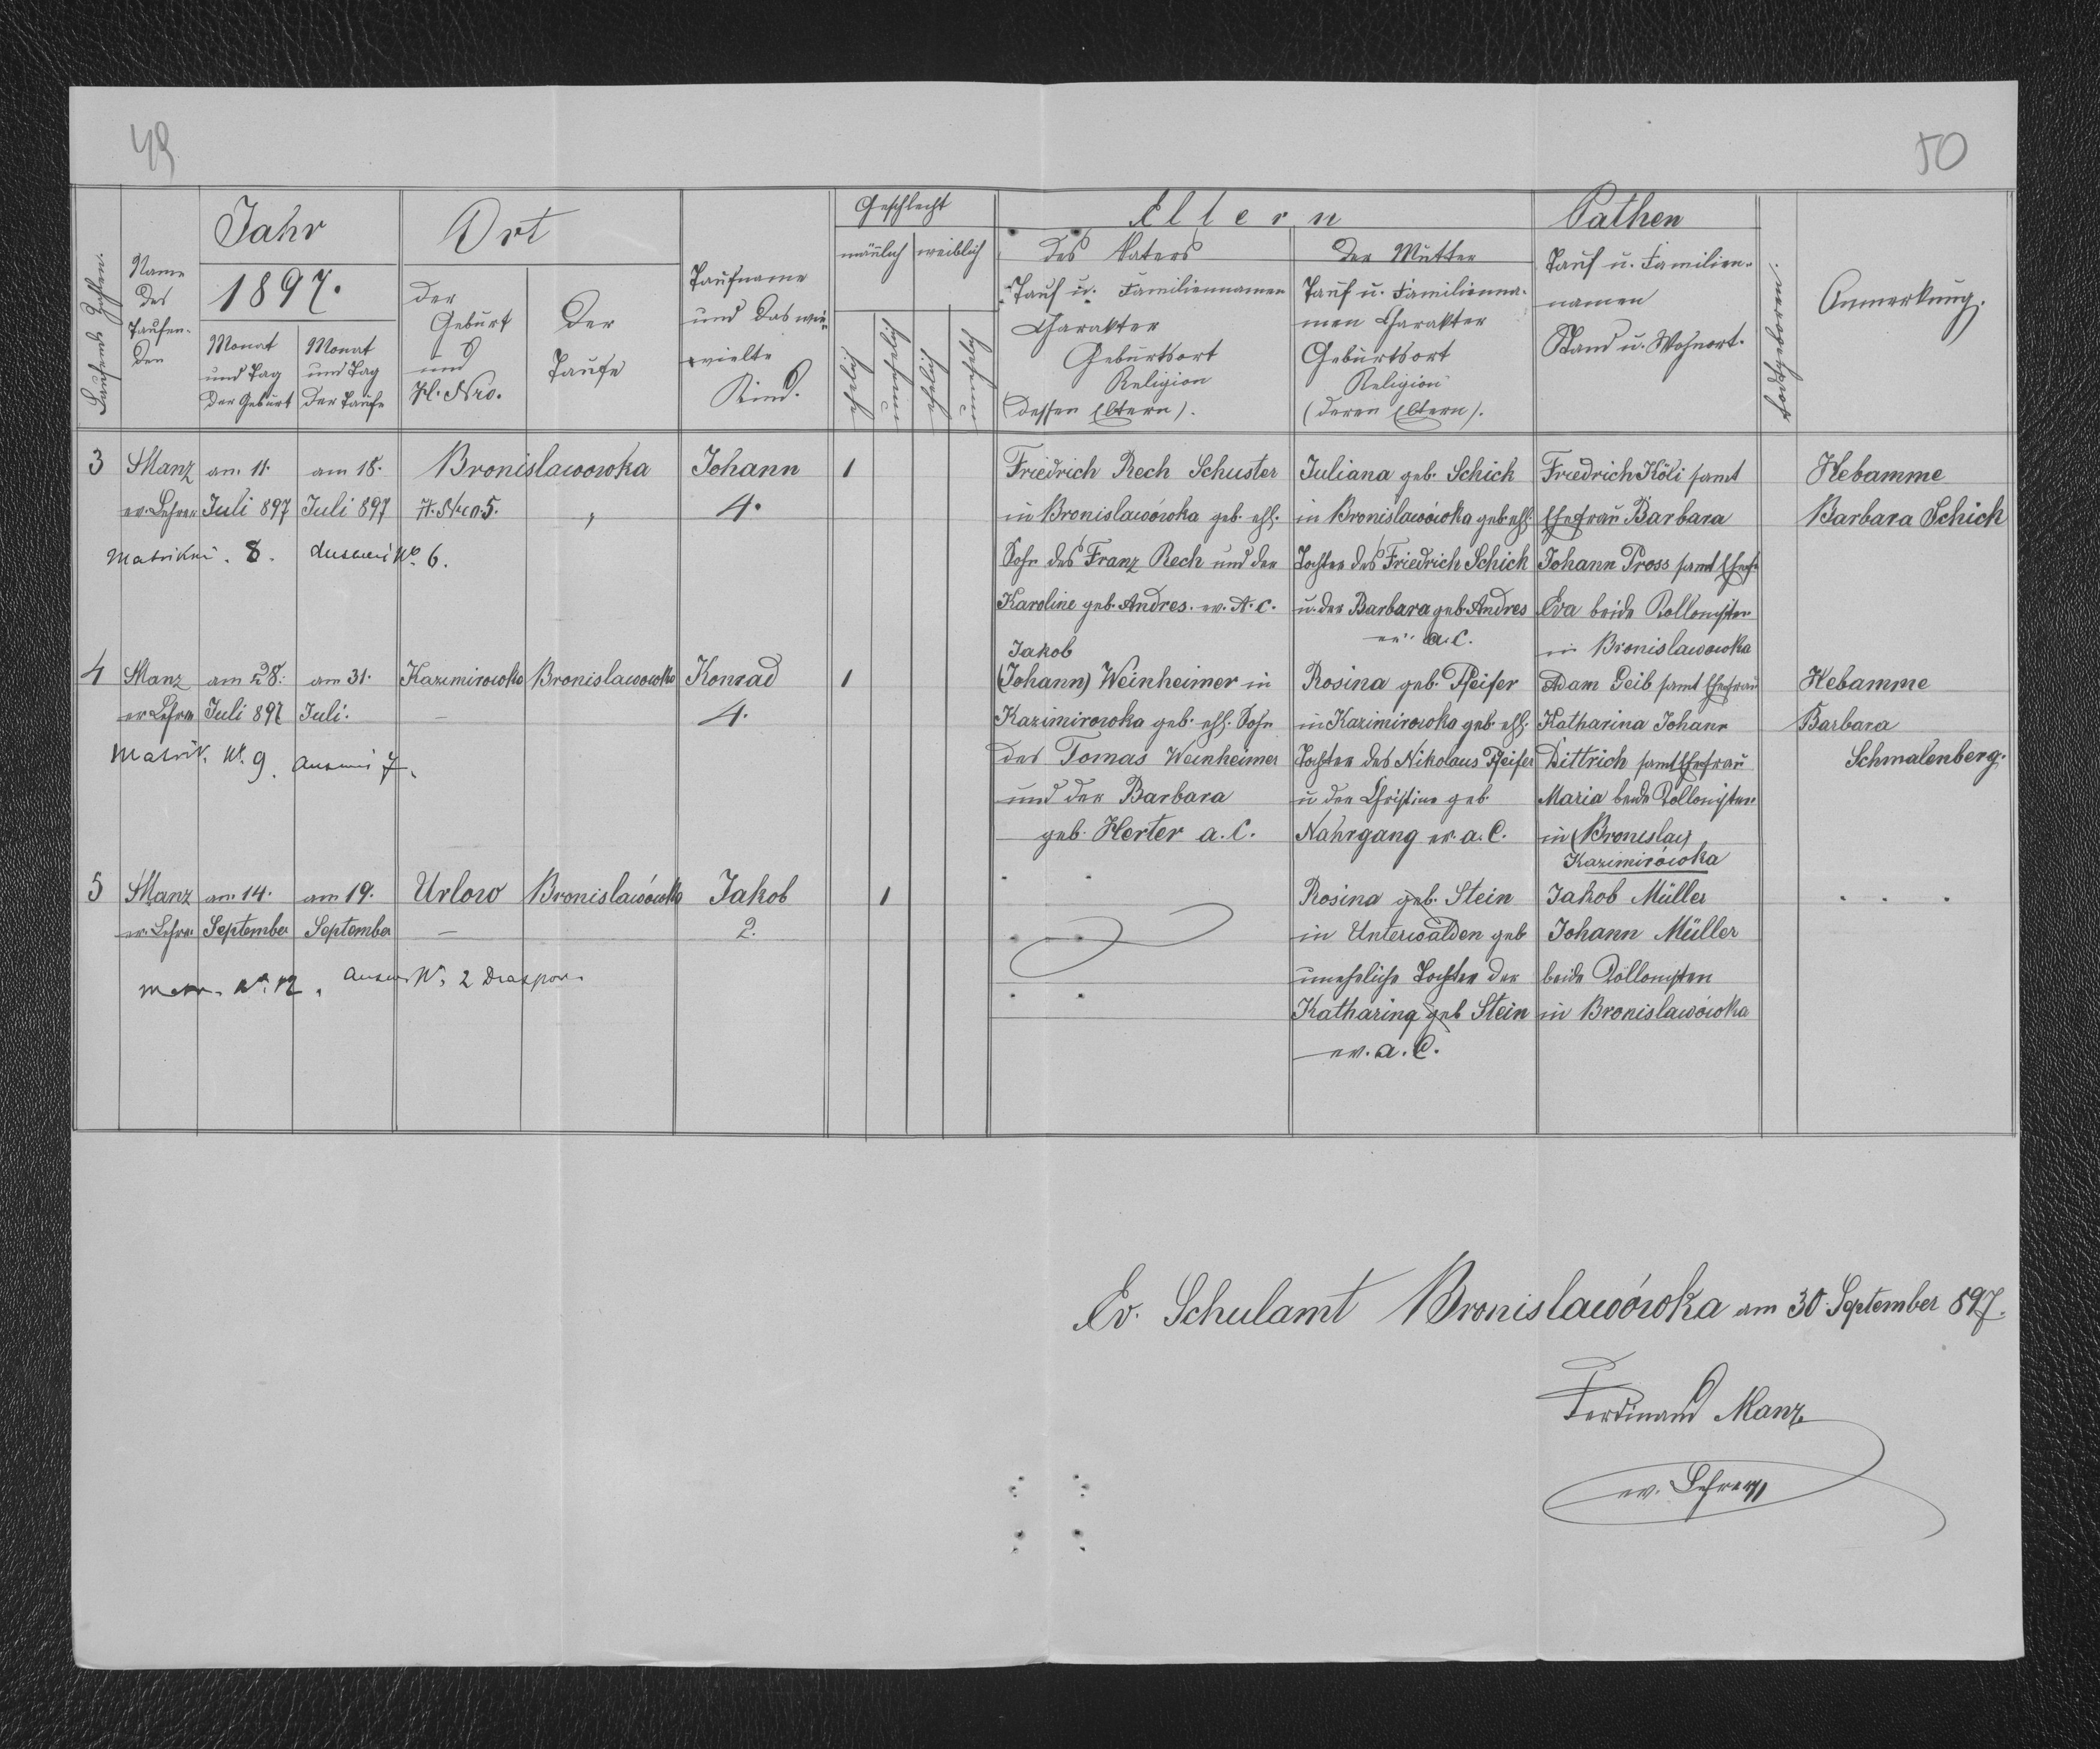 49
50
Laufende Zahlen.
Name
des
Taufen-
den
Jahr
1897.
Monat
und Tag
der Geburt
Monat
und Tag
der Taufe
Ort
der
Geburt
und
H. Nro.
der
Taufe
Taufname
und das wie-
vielte
Kind.
Geschlecht
männlich weiblich
ehelich
unehelich
ehelich
unehelich
Eltern
des Vaters
Tauf u. Familiennamen
Charakter
Geburtsort
Religion
(dessen Eltern).
der Mutter
Tauf u. Familienna-
men Charakter
Geburtsort
Religion
(deren Eltern).
Pathen
Tauf u. Familien-
namen
Stand u. Wohnort.
Todtgeboren.
Anmerkung.
3
Manz
ev. Lehrer
am 11.
Juli 897
am 18.
Juli 897
Bronislawowka
H. Nro 5.
Johann
4.
1
Friedrich Rech Schuster
in Bronislawówka geb. ehl.
Sohn des Franz Rech und der
Karoline geb. Andres. ev. A. C.
Juliana geb. Schick
in Bronislawówka geb. ehl.
Tochter des Friedrich Schick
u. der Barbara geb. Andres
ev. a. C.
Friedrich Köli samt
Ehefrau Barbara
Johann Pross samt Ehefr.
Eva beide Collonisten
in Bronislawowka
Hebamme
Barbara Schick
8.
No. 6.
4
Manz
ev. Lehrer
am 28.
Juli 897
am 31.
Juli.
Kazimirowka
Bronislawowka
Konrad
4.
1
Jakob
(Johann) Weinheimer in
Kazimirowka geb. ehl. Sohn
des Tomas Weinheimer
und der Barbara
geb. Herter a. C.
Rosina geb. Pfeifer
in Kazimirowka geb. ehl.
Tochter des Nikolaus Pfeifer
u. der Christine geb.
Nahrgang ev. a. C.
Adam Geib samt Ehefrau
Katharina Johann
Dittrich samt Ehefrau
Maria beide Collonisten
in (Bronislaw)
Kazimirówka
Hebamme
Barbara
Schmalenberg.
Matrik. No. 9.
7.
5
Manz
ev. Lehrer
am 14.
September
am 19.
September
Urlow
Bronislawówka
Jakob
2.
1
Rosina geb. Stein
in Unterwalden geb
uneheliche Tochter der
Katharina geb Stein
ev. a. C.
Jakob Müller
Johann Müller
beide Collonisten
in Bronislawówka
No. 12.
No. 2
Ev. Schulamt Bronislawówka am 30. September 897.
Ferdinand Manz
ev. Lehrer